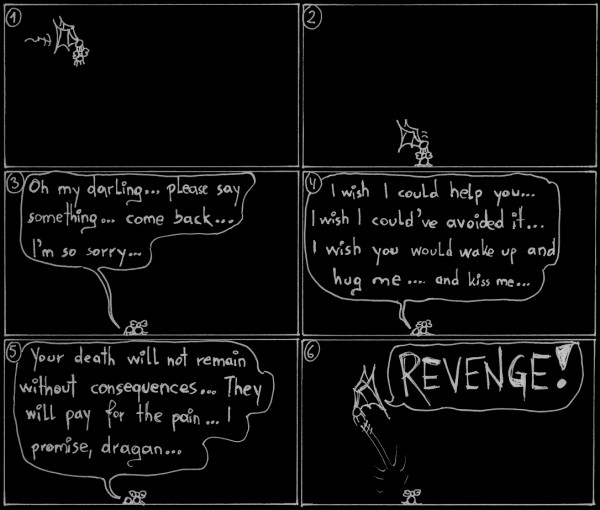 1
2
3
Oh my darling... please say
something... come back...
I'm so sorry...
4
I wish I could help you...
I wish I could've avoided it...
I wish you would wake up and
hug me .... and kiss me...
5
Your death will not remain
without consequences... They
will pay for the pain... I
promise, dragan...
6
REVENGE!